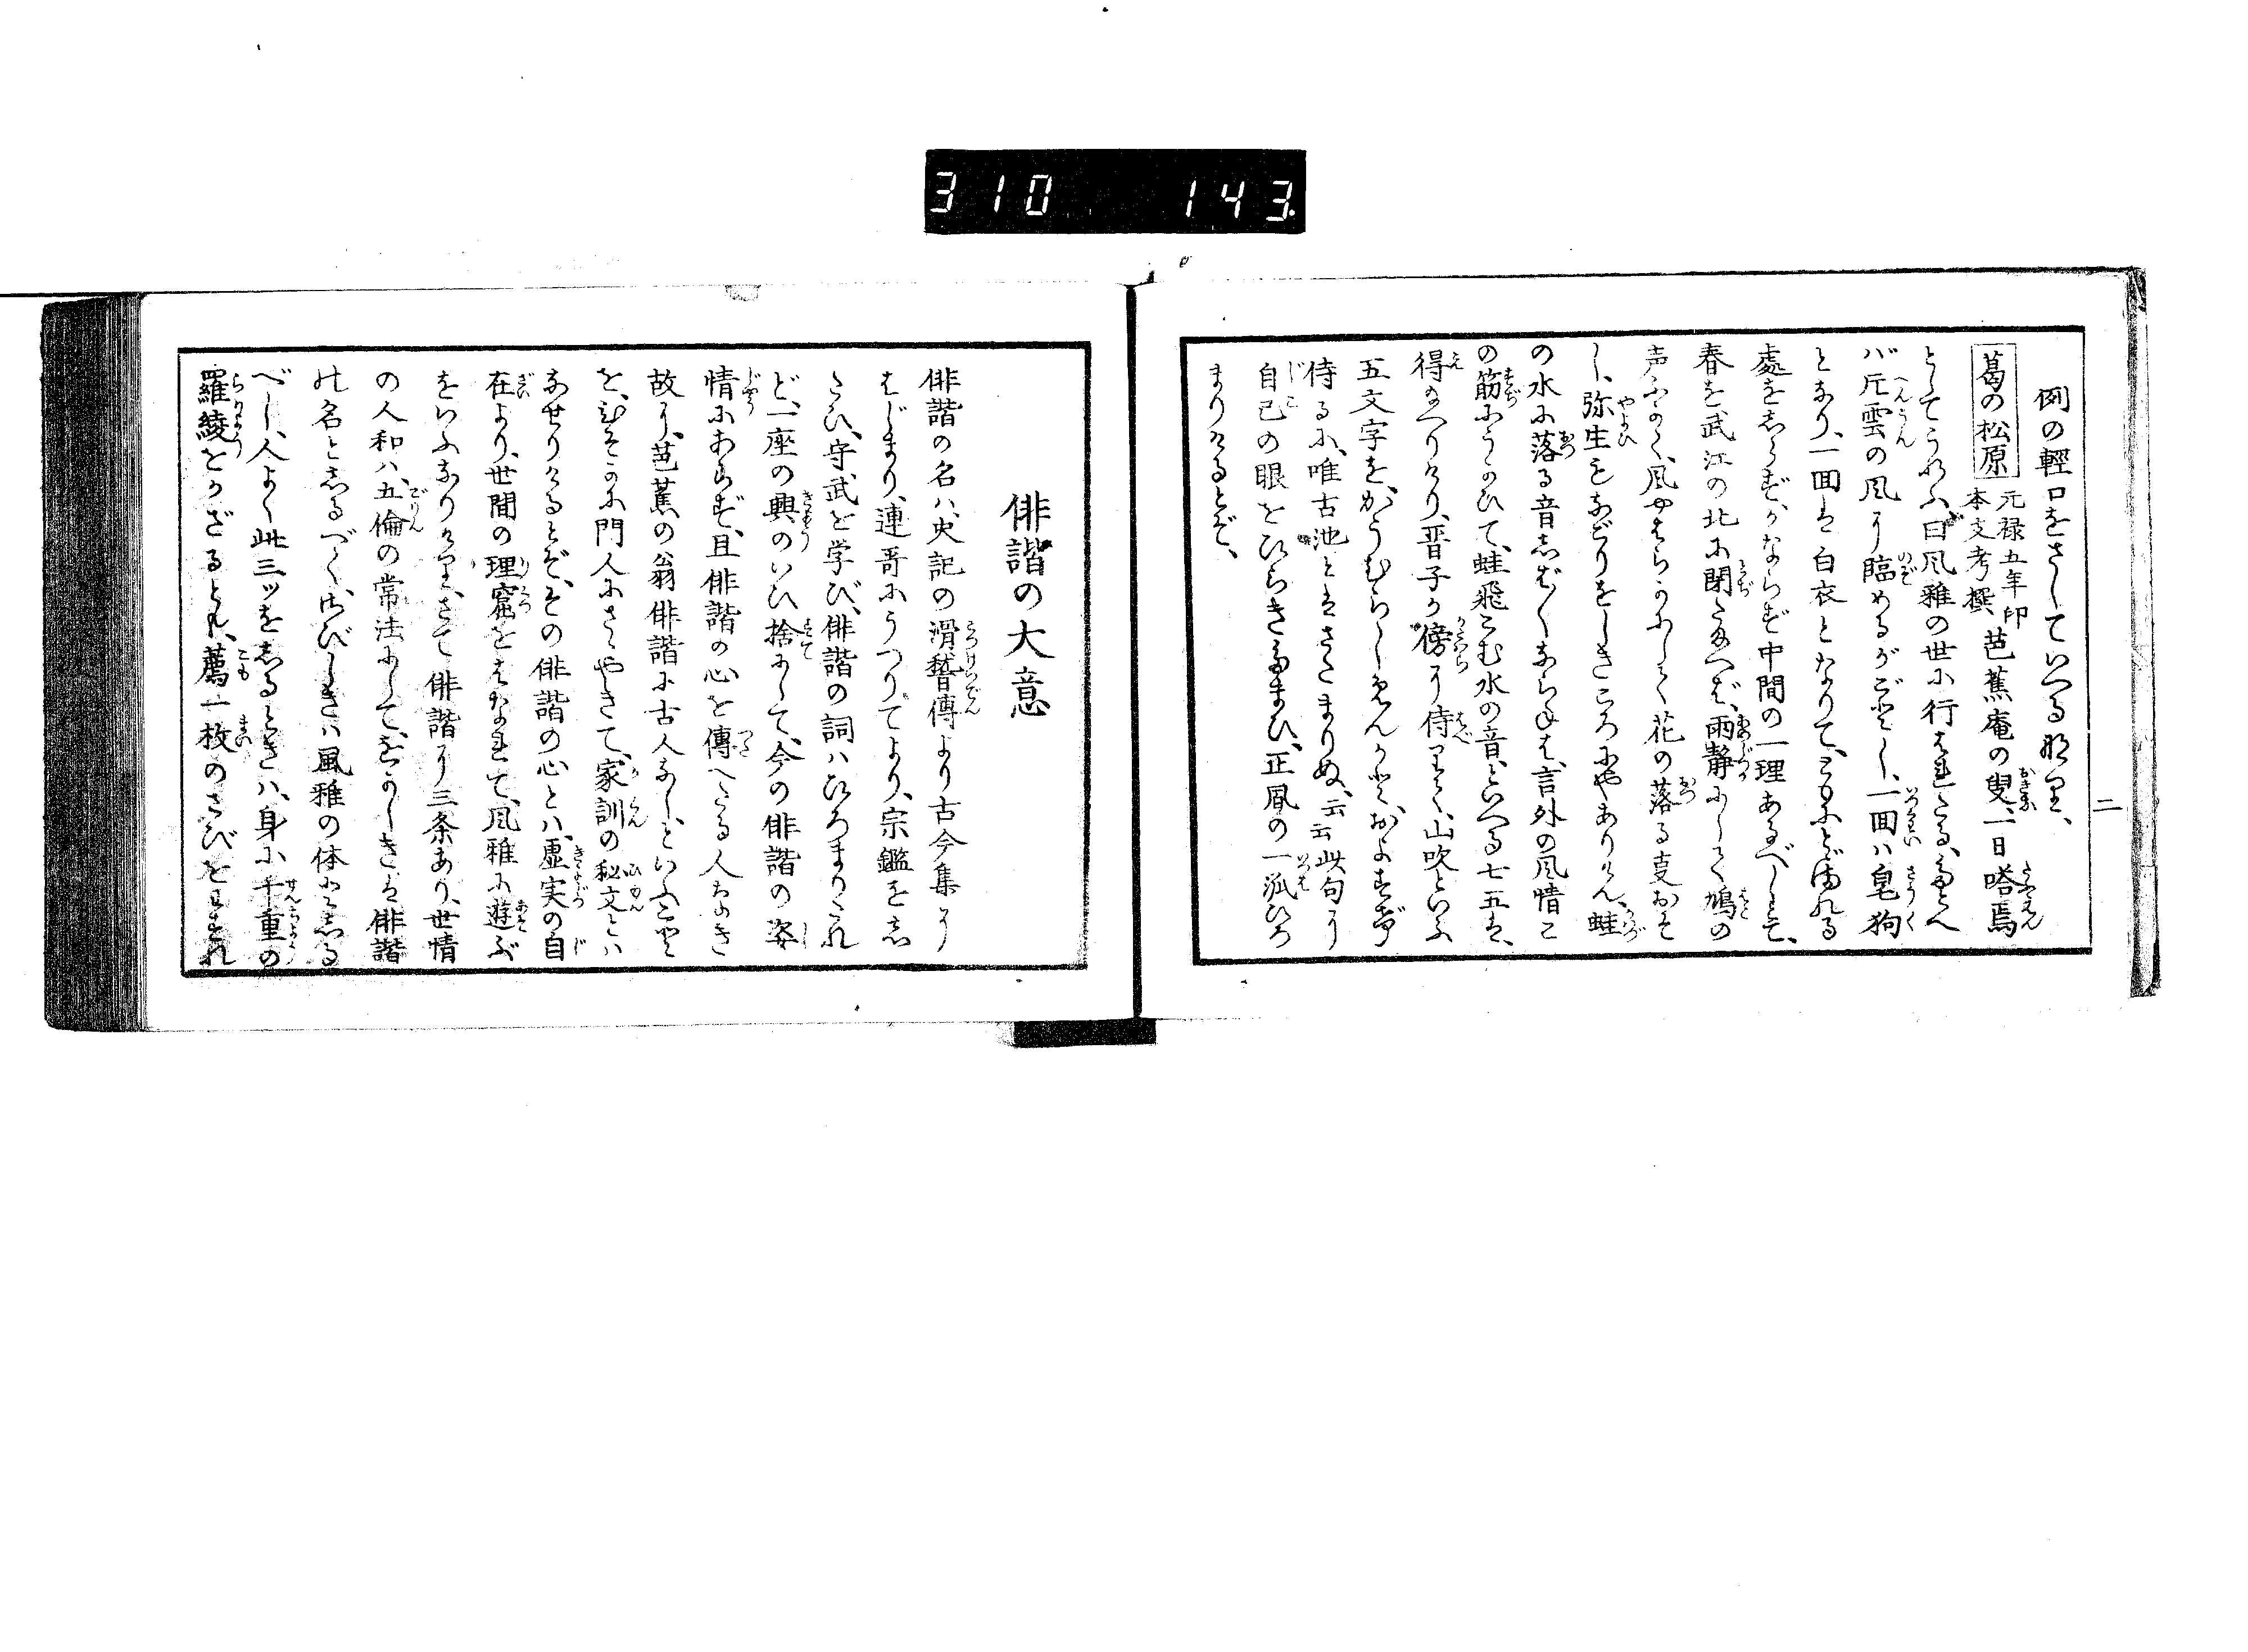 310 143.
二
例の輕口をさしていへる也
葛の松原 元禄五年印 本支考撰 芭蕉庵の叟、一日嗒焉
としてうれふ、曰風雅の世に行はれたる、たとへ
バ片雲の風に臨めるがごとし、一回ハ皂狗
となり、一回は白衣となりて、ともにとゞまれる
處をしらず、かならず中間の一理あるべしとて、
春を武江の北に閉たまへば、雨静にして鳩の
声ふかく、風やはらかにして花の落る事おそ
し、弥生もなごりをしきころにやありけん、蛙
の水に落る音しば〱ならねば、言外の風情こ
の筋にうかびて、蛙飛こむ水の音、といへる七五は、
得給へりけり、晋子が傍に侍りて、山吹といふ
五文字を、かうむらしめんかと、およすげ
侍るに、唯古池とはさだまりぬ、云云此句に
自己の眼をひらきたまひ、正風の一派ひろ
まりけるとぞ、
俳諧の大意
俳諧の名ハ、史記の滑稽傳より古今集に
はじまり、連哥にうつりてより、宗鑑を志
たひ、守、武を学び、俳諧の詞ハひろまりたれ
ど、一座の興のいひ捨にして、今の俳諧の姿
情にあらず、且俳諧の心を傳へたる人なき
故に、芭蕉の翁俳諧に古人なし、といふこと
を、ひそかに門人にさゝやきて、家訓の秘文とハ
なせりけるとぞ、その俳諧の心とハ、虚実の自
在より、世間の理窟をはなれて、風雅に遊ぶ
をいふなりけり、さて俳諧に三条あり、世情
の人和ハ、五倫の常法にして、をかしきは俳諧
の名としるべく、さびしきハ風雅の体としる
べし、人よく此三ッをしるときハ、身に千重の
羅綾をかざるとも、薦一枚のさびをわすれ